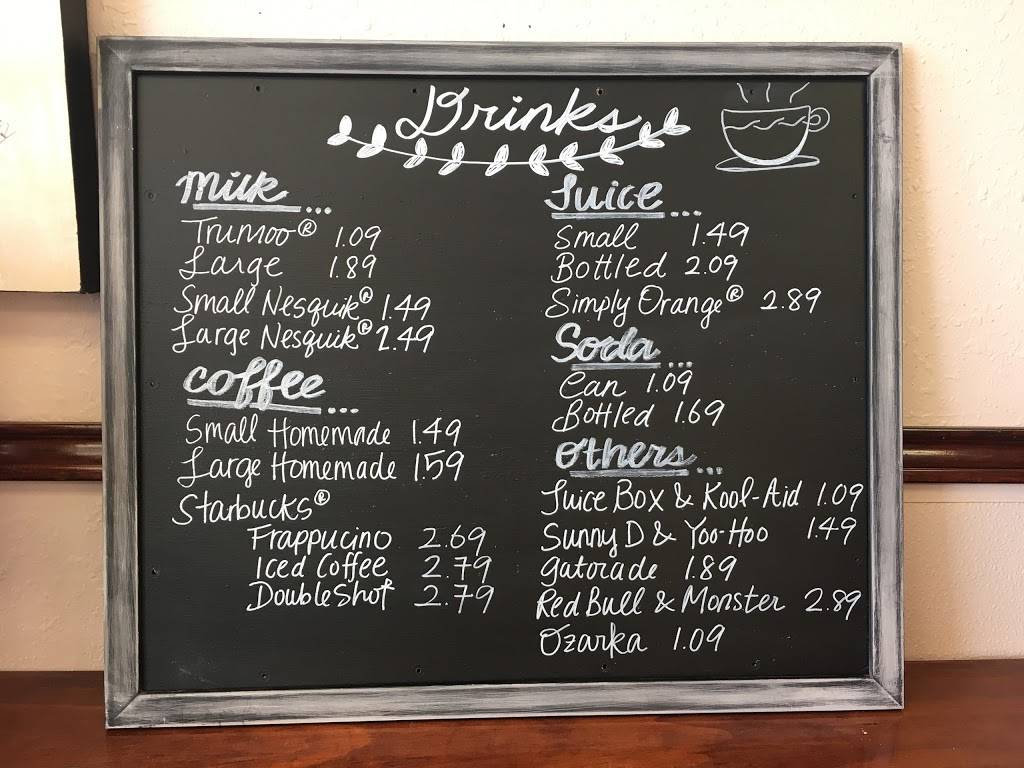 Drinks
Milk...
Trumoo® 1.09
Large 1.89
Small Nesquik® 1.49
Large Nesquik® 2.49
Coffee...
Small Homemade 1.49
Large Homemade 1.59
Starbucks®
Frappucino 2.69
Iced Coffee 2.79
DoubleShot 2.79
Juice...
Small 1.49
Bottled 2.09
Simply Orange® 2.89
Soda...
Can 1.09
Bottled 1.69
Others...
Juice Box & Kool-Aid 1.09
Sunny D & Yoo-Hoo 1.49
Gatorade 1.89
Red Bull & Monster 2.89
Ozarka 1.09